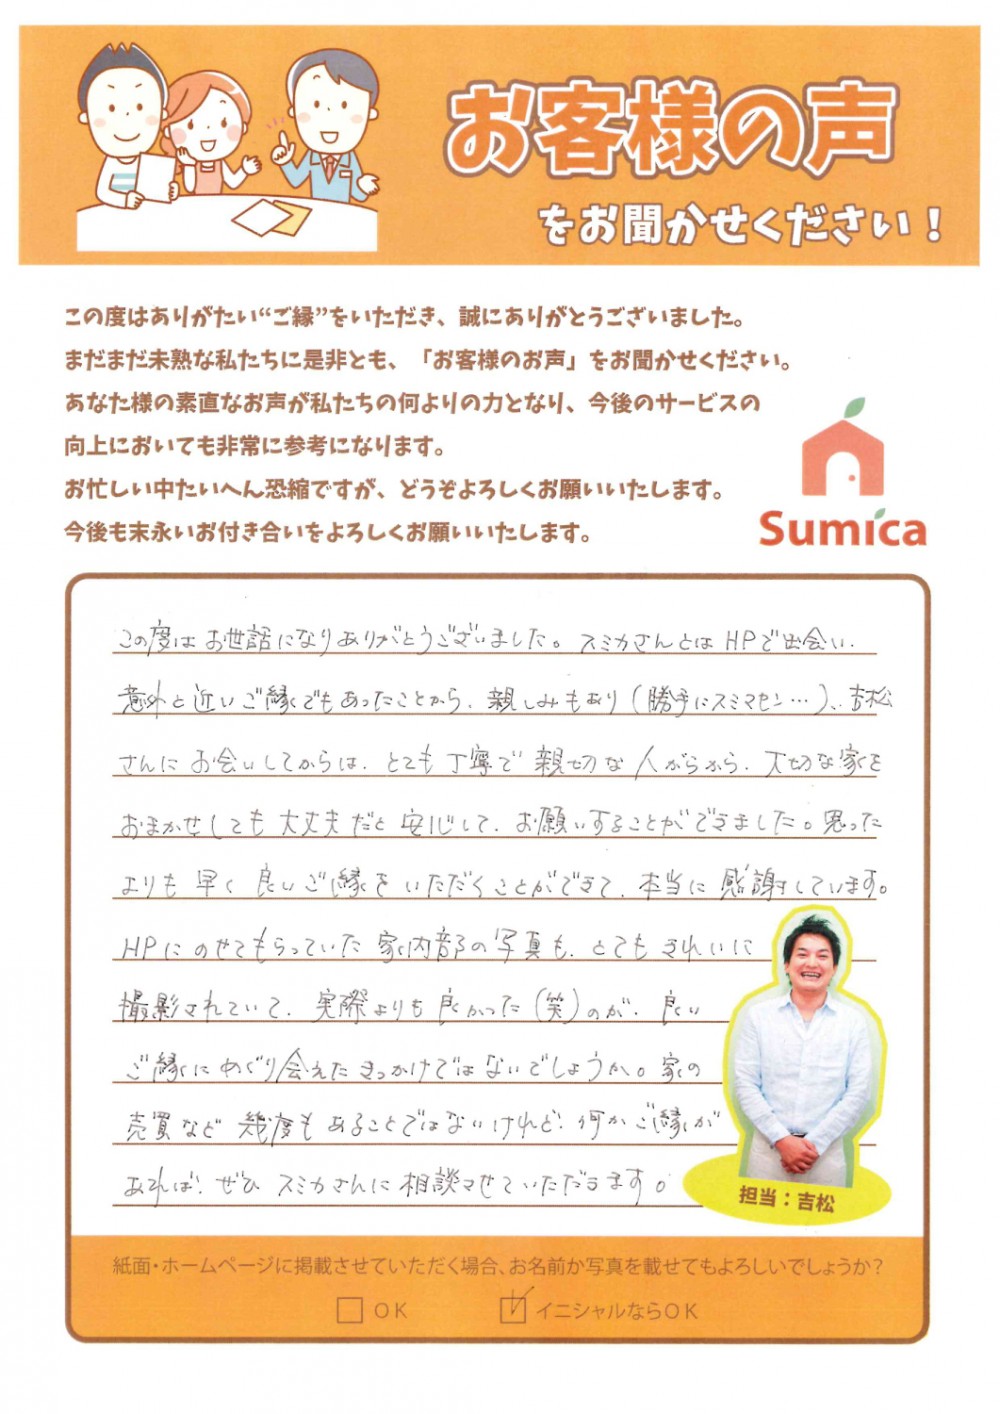 お客様の声
をお聞かせください！
この度はありがたい“ご縁”をいただき、誠にありがとうございました。
まだまだ未熟な私たちに是非とも、「お客様のお声」をお聞かせください。
あなた様の素直なお声が私たちの何よりの力となり、今後のサービスの
向上においても非常に参考になります。
お忙しい中たいへん恐縮ですが、どうぞよろしくお願いいたします。
今後も末永いお付き合いをよろしくお願いいたします。
Sumica
この度はお世話になりありがとうございました。スミカさんとはHPで出会い、
意外と近いご縁でもあったことから、親しみもあり（勝手にスミマセン…）、吉松
さんにお会いしてからは、とても丁寧で親切な人がらから、大切な家を
おまかせしても大丈夫だと安心して、お願いすることができました。思った
よりも早く良いご縁をいただくことができて、本当に感謝しています。
HPにのせてもらっていた家内部の写真も、とてもきれいに
撮影されていて、実際よりも良かった（笑）のが、良い
ご縁にめぐり会えたきっかけではないでしょうか。家の
売買など幾度もあることではないけれど、何かご縁が
あれば、ぜひスミカさんに相談させていただきます。
担当：吉松
紙面・ホームページに掲載させていただく場合、お名前か写真を載せてもよろしいでしょうか？
OK
イニシャルならOK